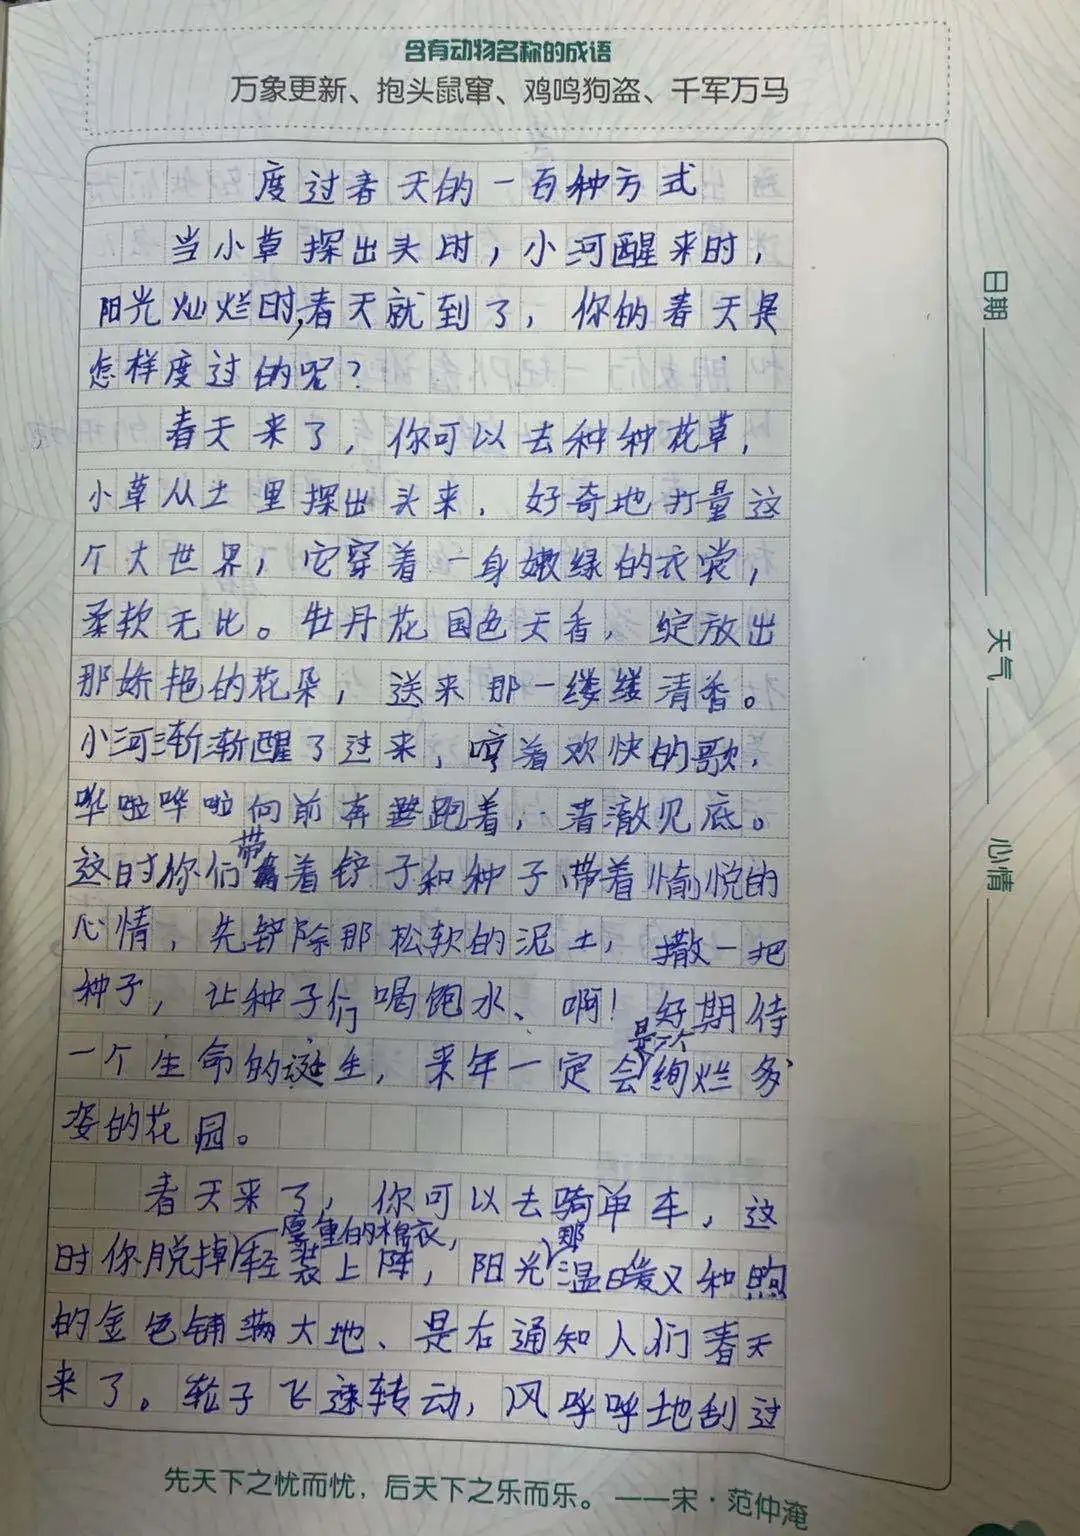 含有动物名称的成语
万象更新、抱头鼠窜、鸡鸣狗盗、千军万马
度过春天的一百种方式
当小草探出头时，小河醒来时，
阳光灿烂时，春天就到了，你的春天是
怎样度过的呢？
春天来了，你可以去种种花草，
小草从土里探出头来，好奇地打量这
个大世界，它穿着一身嫩绿的衣裳，
柔软无比。牡丹花国色天香，绽放出
那娇艳的花朵，送来那一缕缕清香。
小河渐渐醒了过来，哼着欢快的歌，
哗啦哗啦向前奔跑着，清澈见底。
这时你们带着铲子和种子，带着愉悦的
心情，先铲除那松软的泥土，撒一把
种子，让种子们喝饱水、啊！好期待
一个生命的诞生，来年一定会是个绚烂多
姿的花园。
春天来了，你可以去骑单车，这
时你脱掉厚重的棉衣，轻装上阵，阳光那温暖又和煦
的金色铺满大地、是在通知人们春天
来了。轮子飞速转动，风呼呼地刮过
日期
天气
心情
先天下之忧而忧，后天下之乐而乐。——宋·范仲淹